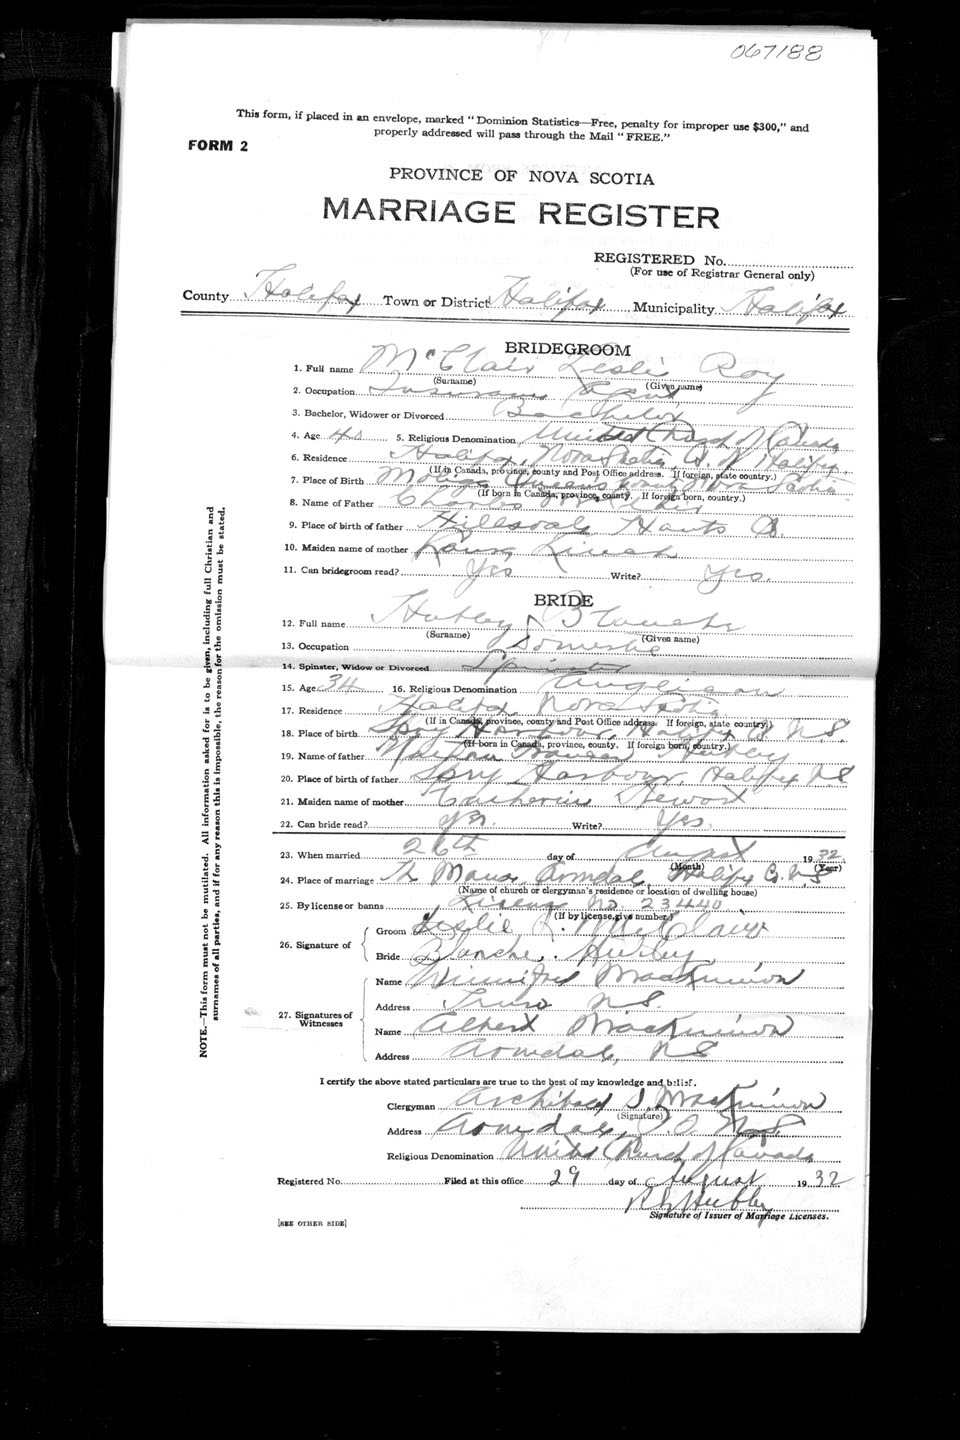 067188
This form, if placed in an envelope, marked "Dominion Statistics—Free, penalty for improper use $300," and
properly addressed will pass through the Mail "FREE."
FORM 2
PROVINCE OF NOVA SCOTIA
MARRIAGE REGISTER
REGISTERED No.
(For use of Registrar General only)
County Halifax Town or District Halifax Municipality Halifax
BRIDEGROOM
1. Full name McClair Leslie Roy
(Surname) (Given name)
2. Occupation Insurance Agent
3. Bachelor, Widower or Divorced Bachelor
4. Age 40 5. Religious Denomination United Church of Canada
6. Residence Halifax, Nova Scotia Halifax
(If in Canada, province, county and Post Office address. If foreign, state country.)
7. Place of Birth Queens Nova Scotia
(If born in Canada, province, county. If foreign born, country.)
8. Name of Father Charles
9. Place of birth of father Hillsvale Hants Co.
10. Maiden name of mother
11. Can bridegroom read? Yes Write? Yes.
BRIDE
12. Full name Hubley Blanche
(Surname) (Given name)
13. Occupation Domestic
14. Spinster, Widow or Divorced Spinster
15. Age 34 16. Religious Denomination Anglican
17. Residence Halifax Nova Scotia
(If in Canada, province, county and Post Office address. If foreign, state country.)
18. Place of birth Spry Harbour, Halifax Co N.S.
(If born in Canada, province, county. If foreign born, country.)
19. Name of father Hubley
20. Place of birth of father Spry Harbour, Halifax N S
21. Maiden name of mother Catherine Stewart
22. Can bride read? yes. Write? Yes.
23. When married 26th day of August 1932
(Month) (Year)
24. Place of marriage The Manse, Armdale, Halifax Co. N.S
(Name of church or clergyman's residence or location of dwelling house)
25. By license or banns License No. 23440
(If by license, give number.)
26. Signature of
Groom Leslie R. McClair
Bride Blanche Hubley
27. Signatures of Witnesses
Name Winnifred MacKinnon
Address Truro N.S.
Name Albert MacKinnon
Address Armdale, N S
I certify the above stated particulars are true to the best of my knowledge and belief.
Clergyman Archibald S. MacKinnon
(Signature)
Address Armdale, P.O. N S
Religious Denomination United Church of Canada
Registered No. Filed at this office 29 day of August 1932
Hubley
Signature of Issuer of Marriage Licenses.
[SEE OTHER SIDE]
NOTE.—This form must not be mutilated. All information asked for is to be given, including full Christian and
surnames of all parties, and if for any reason this is impossible, the reason for the omission must be stated.